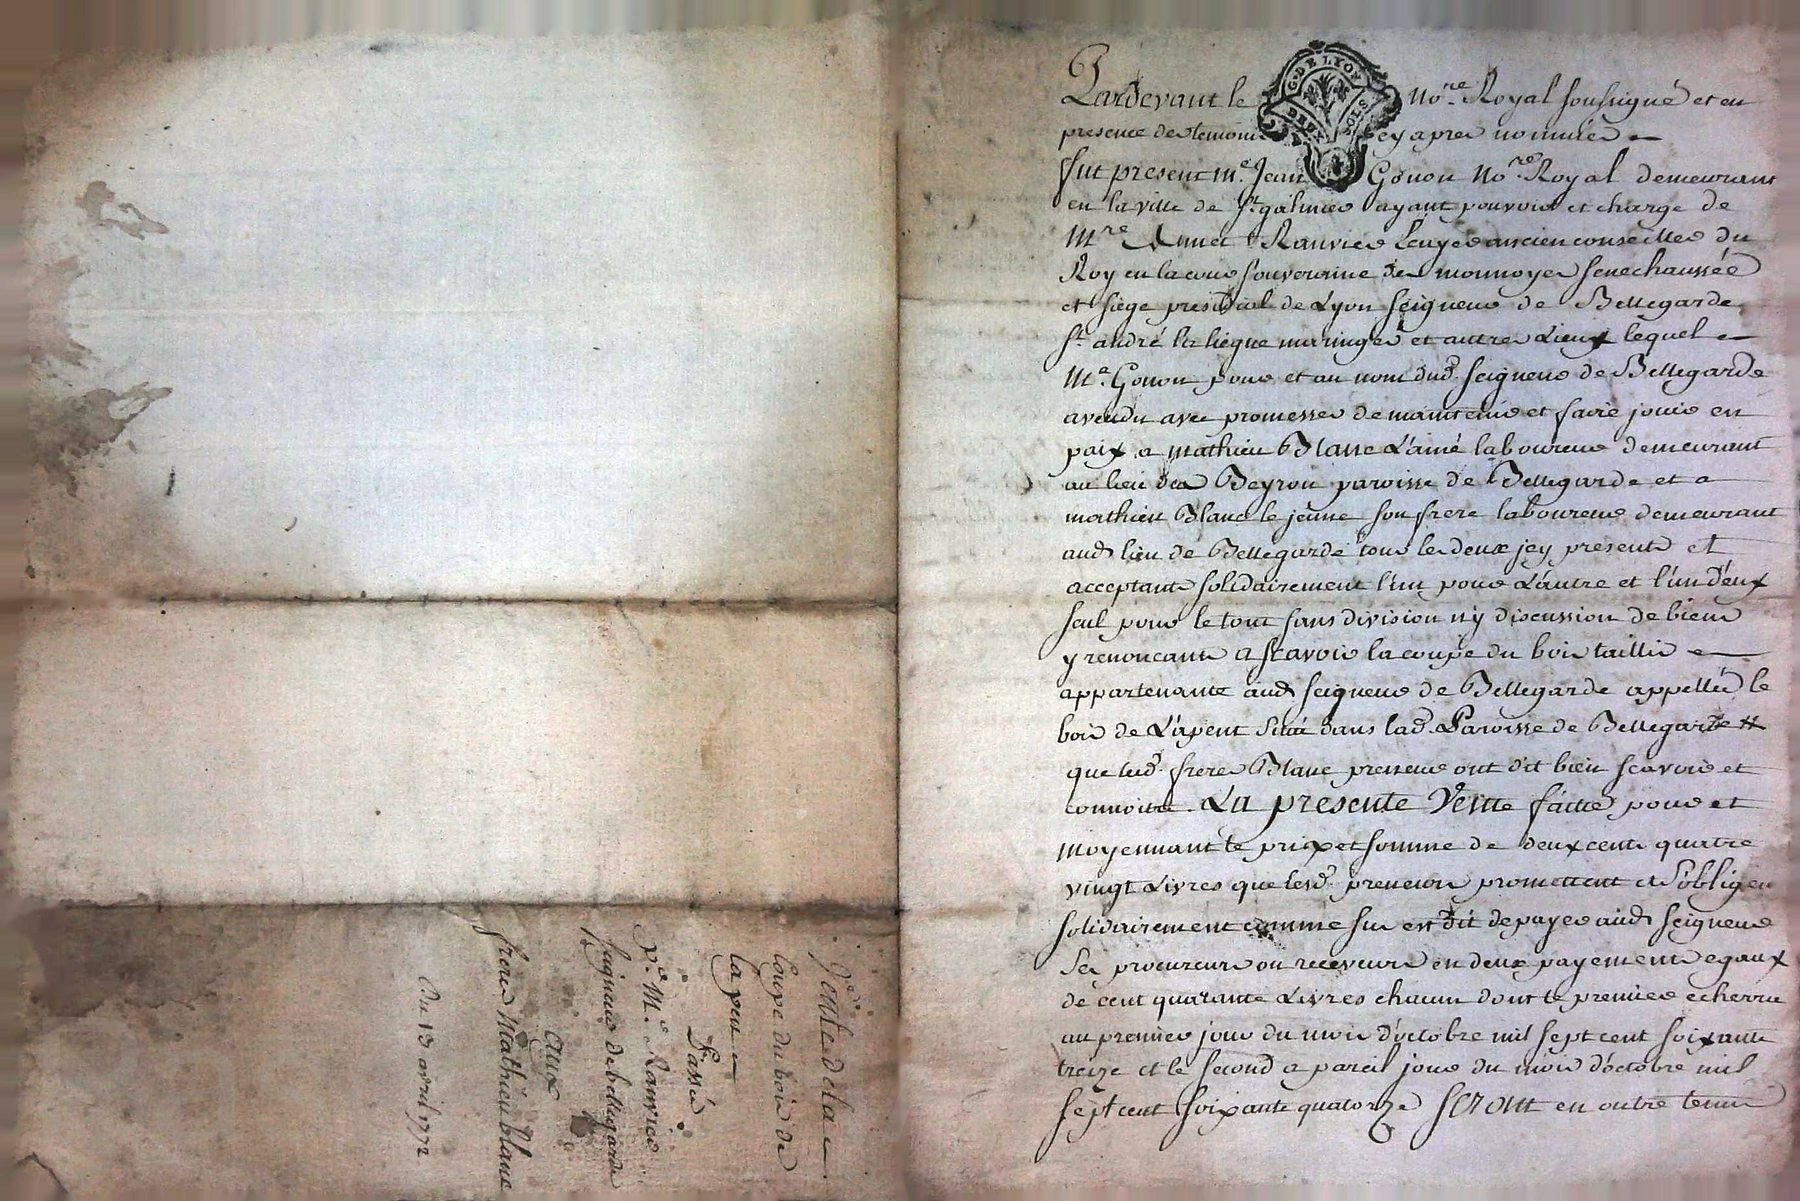 Vente de la
Coupe du bois de
lapent
Passée
Pr. Me. Ranvier
seigneur de bellegarde
aux
freres Mathieu blanc
Du 13 avril 1772
G. DE LYON
DEUX SOLS
Pardevant le No.re Royal soussigné et en
presence des temoins cy apres nommés
fut present me. Jean Gonon No.re Royal demeurant
en la ville de St. galmier ayant pouvoir et charge de
Mre Annet Ranvier Ecuyer ancien conseiller du
Roy en la cour souveraine des monnoyes senechaussée
et siege presidial de Lyon seigneur de Bellegarde
St. andré la liegue maringes et autres Lieux lequel
Me. Gonon pour et au nom dud. seigneur de Bellegarde
a vendu avec promesse de maintenir et faire jouir en
paix a mathieu Blanc L'ainé laboureur demeurant
au lieu des Peyron paroisse de Bellegarde et a
mathieu Blanc le jeune son frere laboureur demeurant
aud. lieu de Bellegarde tous les deux jcy presents et
acceptants solidairement l'un pour L'autre et l'un d'eux
seul pour le tout sans division n'y discussion de biens
y renoncants a scavoir la coupe du bois taillis
appartenante aud. seigneur de Bellegarde appellés le
bois de L'apent situé dans lad. Paroisse de Bellegarde
que lesd. freres Blanc preneurs ont dit bien scavoir et
connoitre. La presente Vente faitte pour et
moyennant le prix et somme de deux cents quatre
vingt Livres que lesd. preneurs promettent et s'obligent
solidairement comme sus est dit de payer aud. seigneur
ses procureurs ou receveurs en deux payements egaux
de cent quarante Livres chacun dont le premier echerra
au premier jour du mois d'octobre mil sept cent soixante
treize et le second a pareil jour du mois d'octobre mil
sept cent soixante quatorze seront en outre tenus